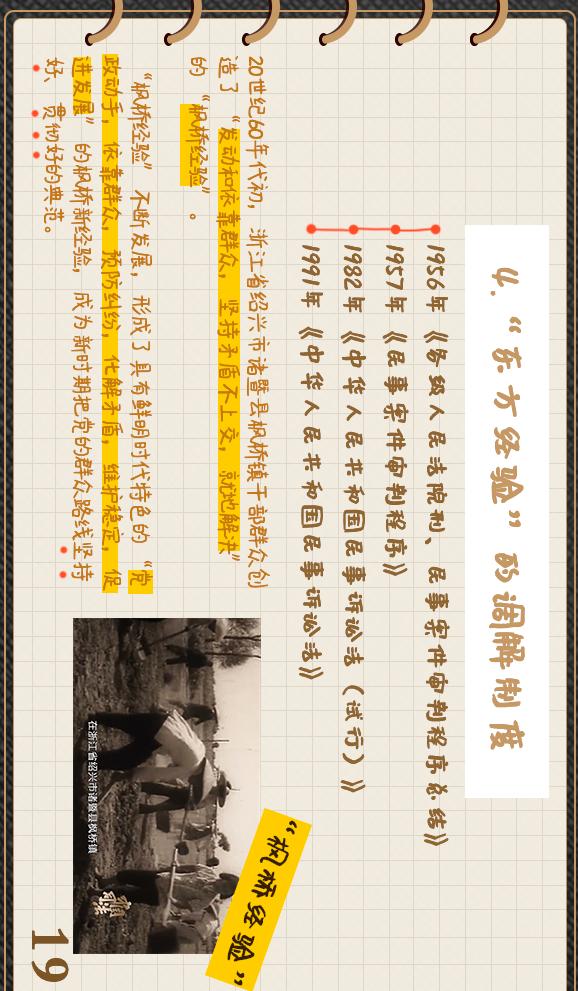 4. “东方经验” 的调解制度
1956年《各级人民法院刑、民事案件审判程序总结》
1957年《民事案件审判程序》
1982年《中华人民共和国民事诉讼法（试行）》
1991年《中华人民共和国民事诉讼法》
20世纪60年代初，浙江省绍兴市诸暨县枫桥镇干部群众创
造了“发动和依靠群众，坚持矛盾不上交，就地解决”
的“枫桥经验”。
“枫桥经验”不断发展，形成了具有鲜明时代特色的“党
政动手，依靠群众，预防纠纷，化解矛盾，维护稳定，促
进发展”的枫桥新经验，成为新时期把党的群众路线坚持
好、贯彻好的典范。
在浙江省绍兴市诸暨县枫桥镇
“枫桥经验”
19